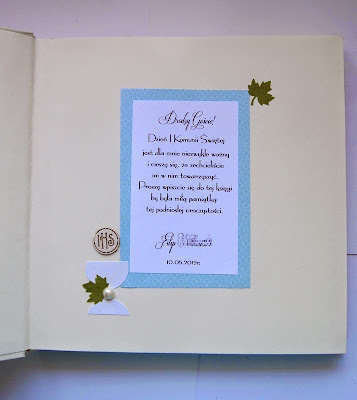 Drodzy Goście!
Dzień I Komunii Świętej
jest dla mnie niezwykle ważny
i cieszę się, że zechcieliście
mi w nim towarzyszyć.
Proszę wpiszcie się do tej księgi
by była miłą pamiątką
tej podniosłej uroczystości.
Filip
10.05.2015r.
IHS